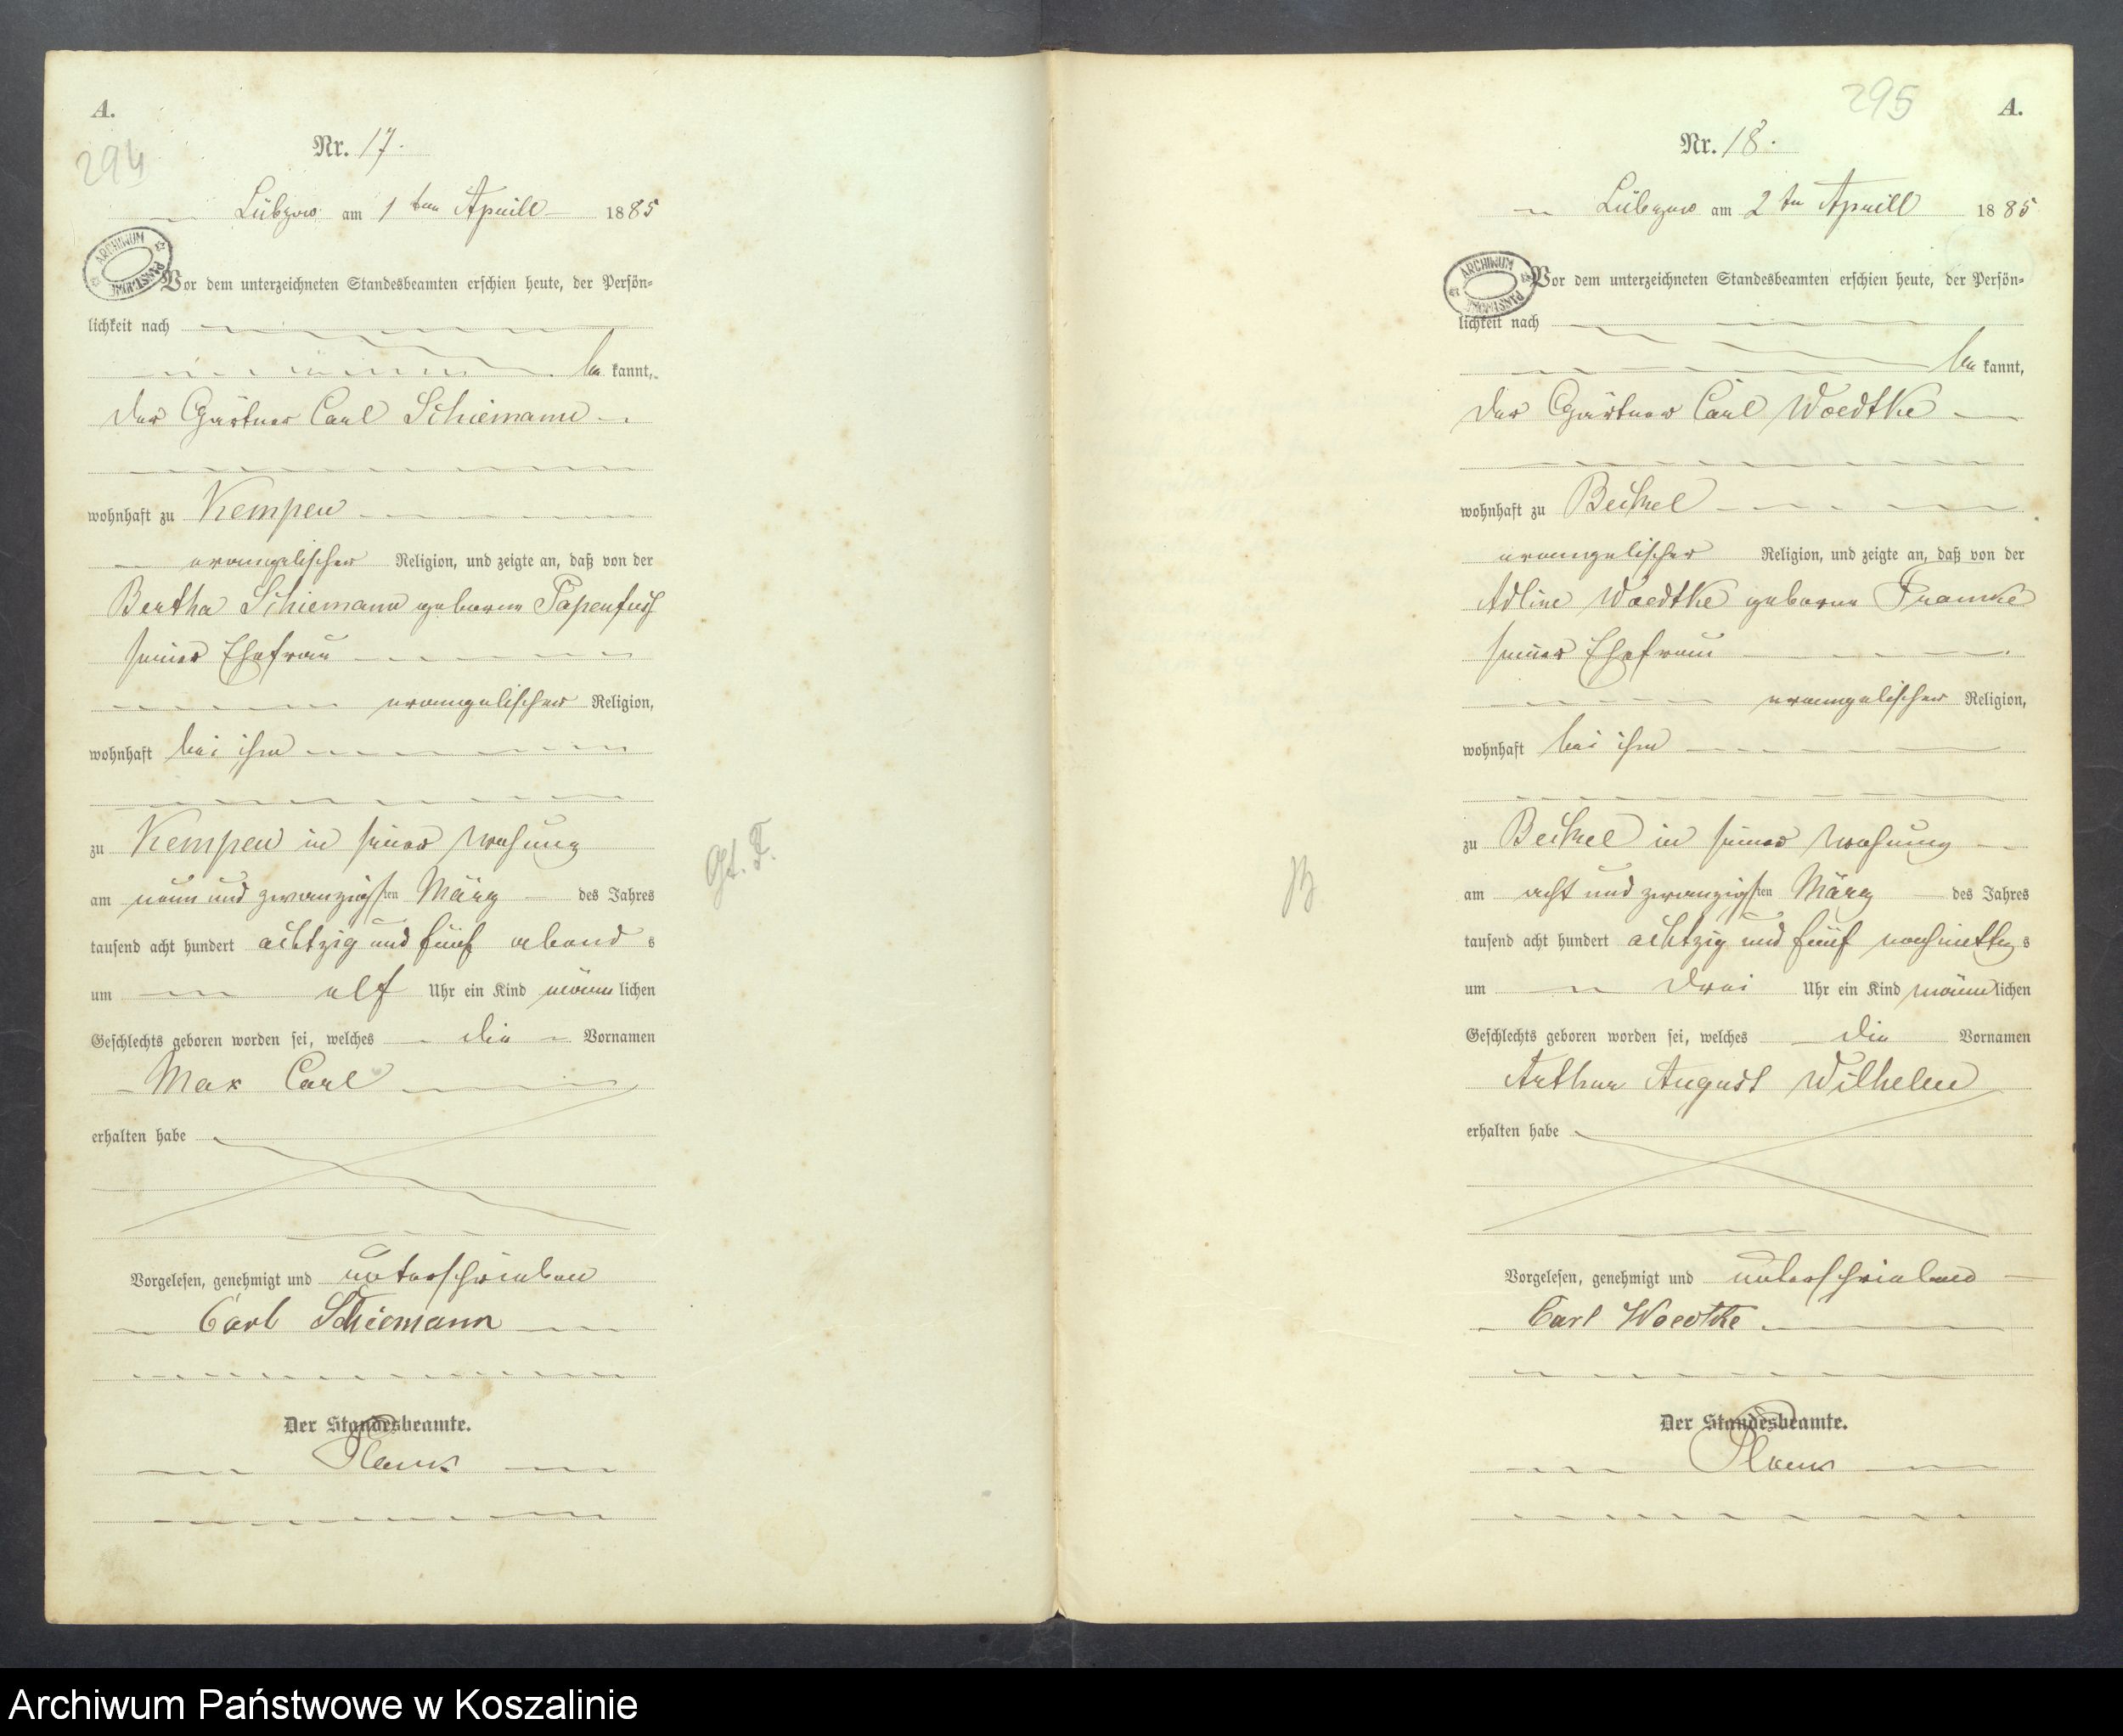 A.
294
Nr. 17.
Lübzow am 1 ten Aprill 1885
ARCHIWUM PAŃSTWOWE
Vor dem unterzeichneten Standesbeamten erschien heute, der Persön=
lichkeit nach
be kannt,
der Gärtner Carl Schiemann
wohnhaft zu Kempen
evangelischer Religion, und zeigte an, daß von der
Bertha Schiemann geborne Papenfuß
seiner Ehefrau
evangelischer Religion,
wohnhaft bei ihm
zu Kempen in seiner Wohung
am neun und zwanzigsten März des Jahres
tausend acht hundert achtzig und fünf abend s
um elf Uhr ein Kind männ lichen
Geschlechts geboren worden sei, welches die Vornamen
Max Carl
erhalten habe
Vorgelesen, genehmigt und unterschrieben
Carl Schiemann
Der Standesbeamte.
295
A.
Nr. 18.
Lübzow am 2 ten Aprill 1885
ARCHIWUM PAŃSTWOWE
Vor dem unterzeichneten Standesbeamten erschien heute, der Persön=
lichkeit nach
be kannt,
der Gärtner Carl Woedtke
wohnhaft zu Beckel
evangelischer Religion, und zeigte an, daß von der
Adline Woedtke geborne Framke
seiner Ehefrau
evangelischer Religion,
wohnhaft bei ihm
zu Beckel in seiner Wohung
am acht und zwanzigsten März des Jahres
tausend acht hundert achtzig und fünf nachmittag s
um drei Uhr ein Kind männ lichen
Geschlechts geboren worden sei, welches die Vornamen
Arthur August Wilhelm
erhalten habe
Vorgelesen, genehmigt und unterschrieben
Carl Woedtke
Der Standesbeamte.
Archiwum Państwowe w Koszalinie